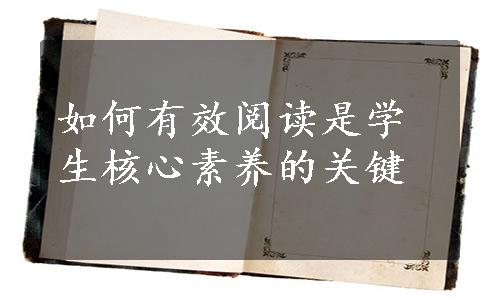 如何有效阅读是学
生核心素养的关键